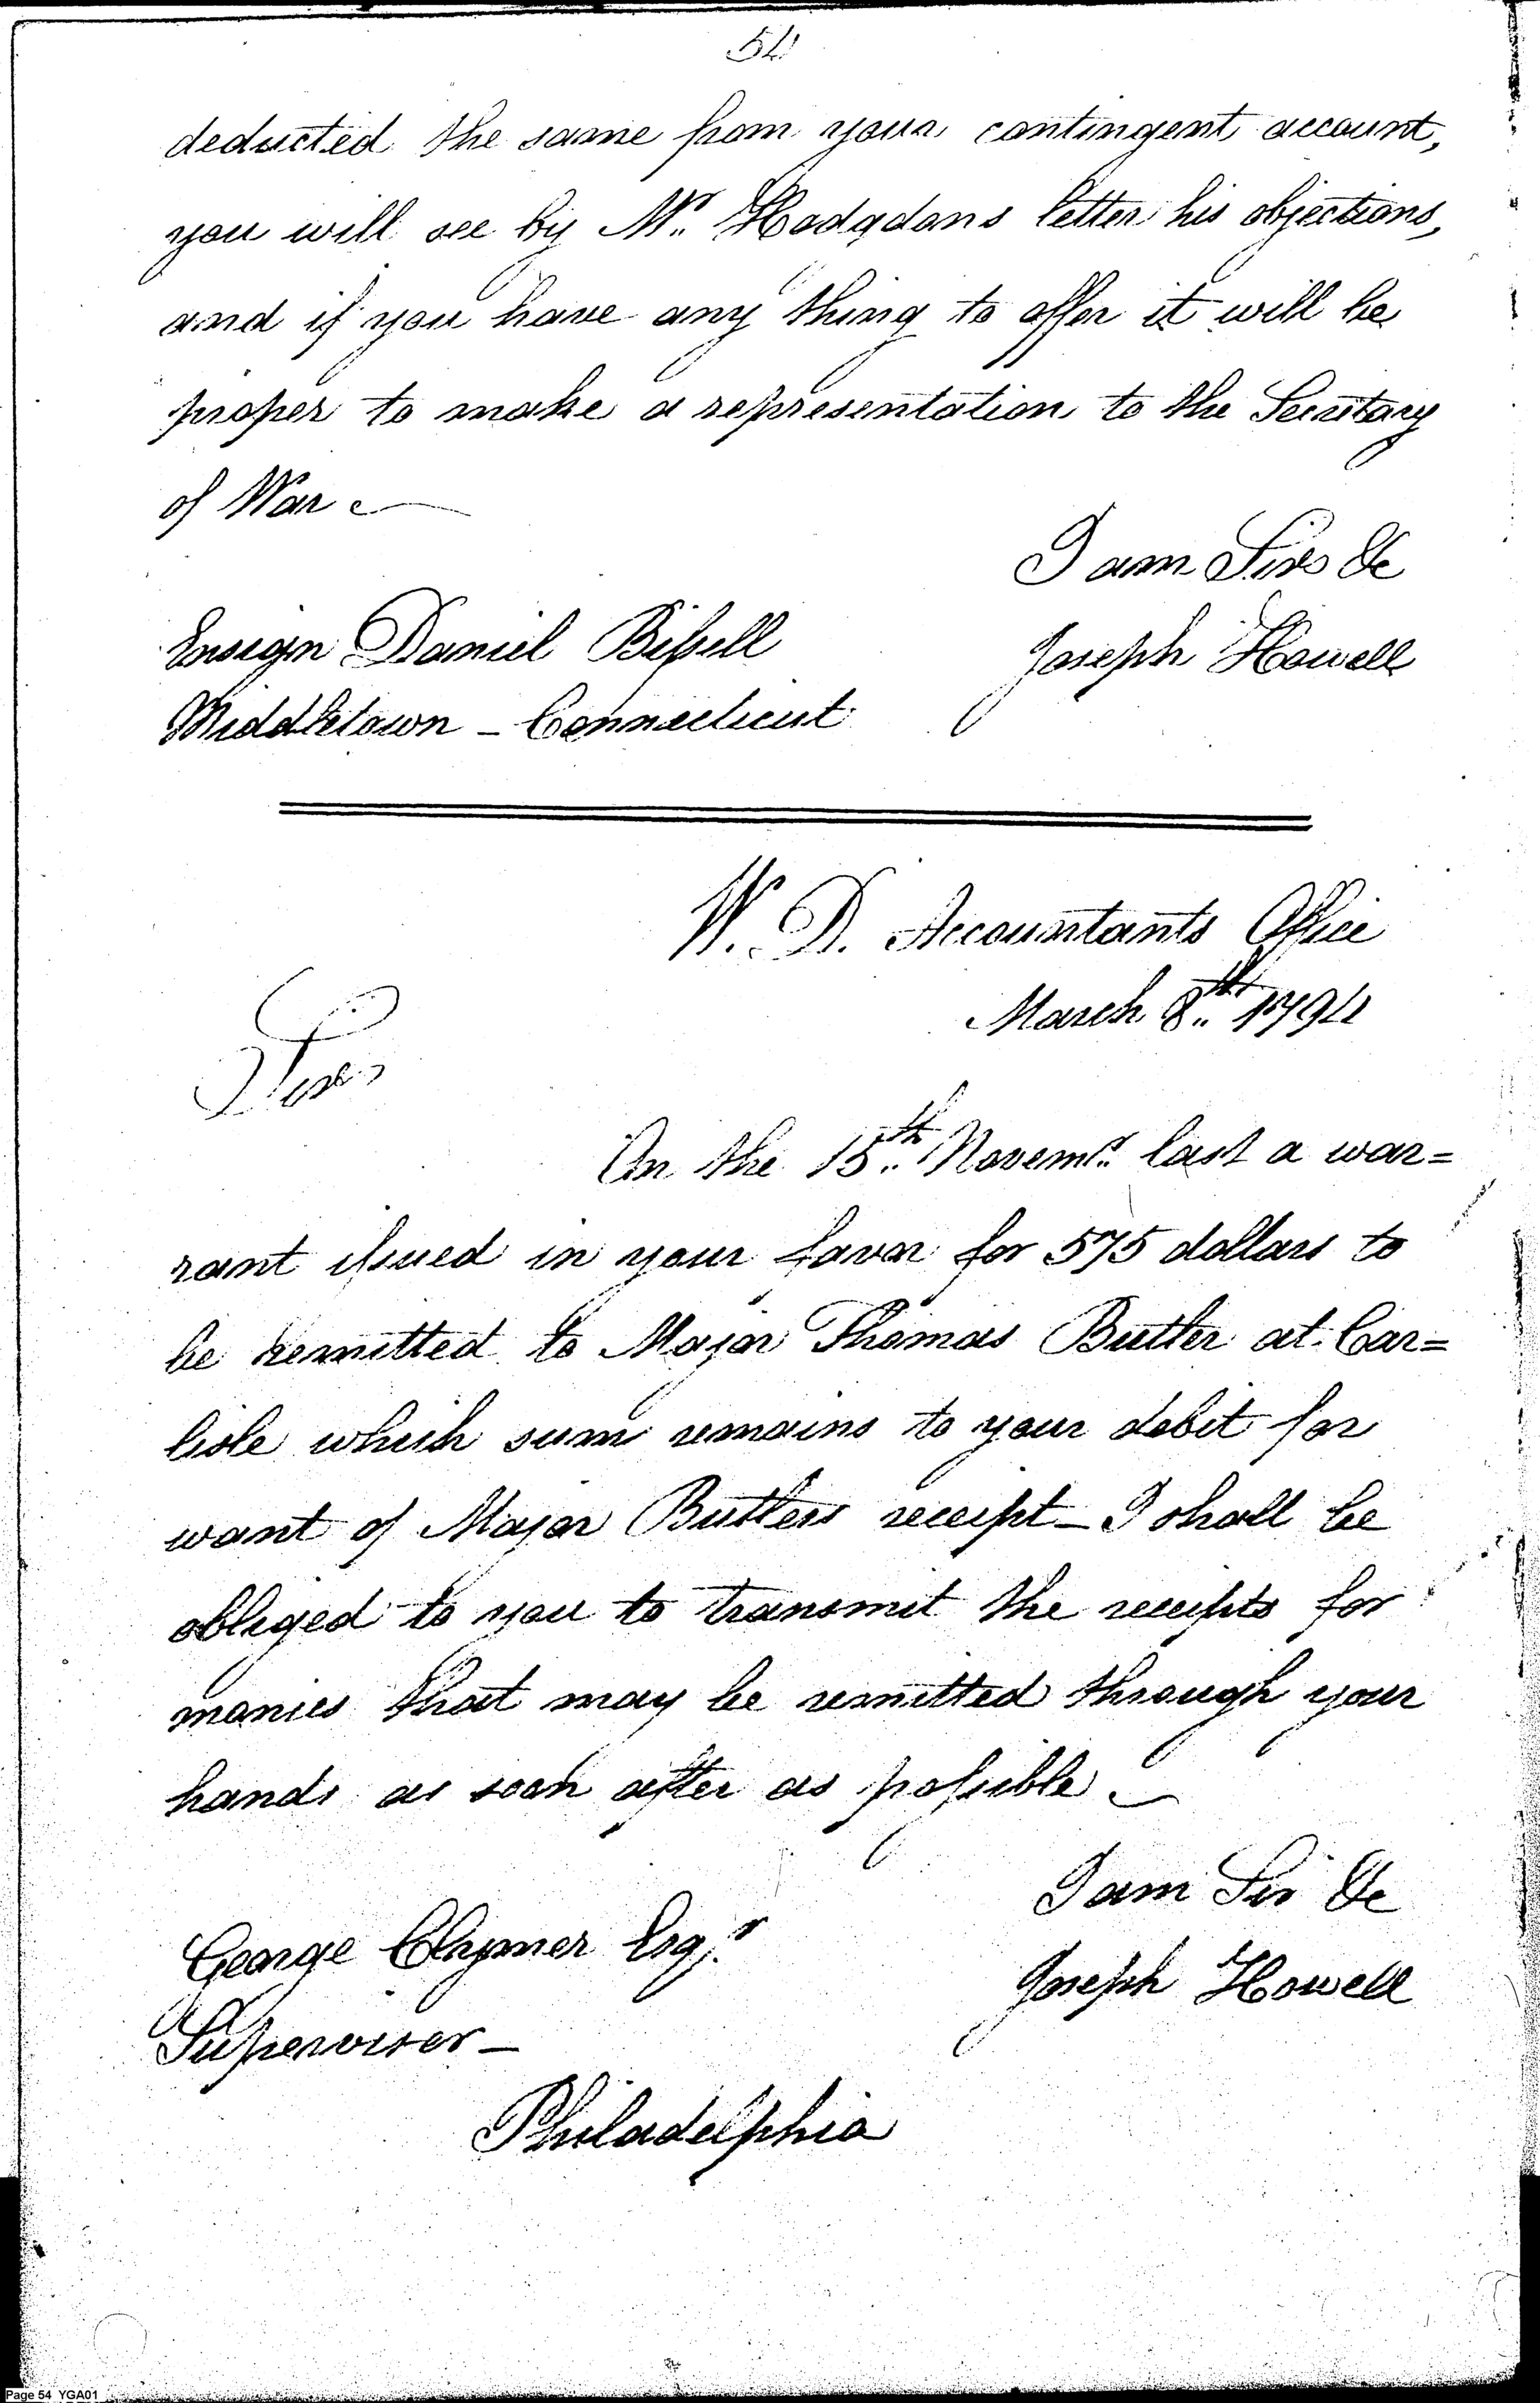 54
deducted the same from your contingent account,
you will see by Mr. Hodgdons letter his objections,
and if you have any thing to offer it will be
proper to make a representation to the Secretary
of War
I am Sir &c
Ensign Daniel Bissell
Joseph Howell
Middletown - Connecticut
W. D. Accountants Office
March 8th 1794
Sir,
On the 15th Novemr. last a war=
rant issued in your favor for 575 dollars to
be remitted to Major Thomas Butler at Car=
lisle which sum remains to your debit for
want of Major Butlers receipt - I shall be
obliged to you to transmit the receipts for
monies that may be remitted through your
hands as soon after as possible
I am Sir &c
George Clymer Esqr.
Joseph Howell
Supervisor -
Philadelphia
Page 54 YGA01